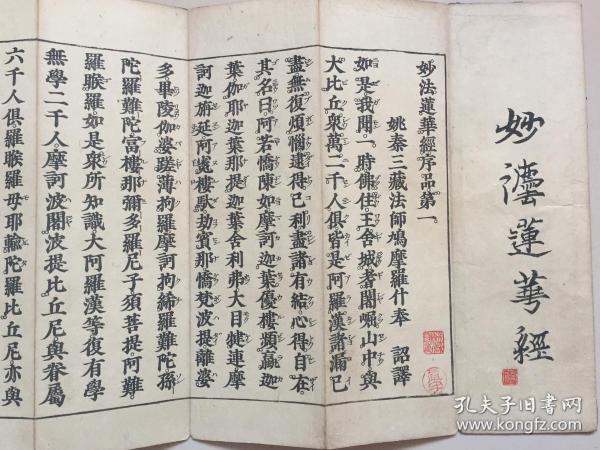 妙法蓮華經
妙法蓮華經序品第一
姚秦三藏法師鳩摩羅什奉 詔譯
如是我聞一時佛住王舍城耆闍崛山中與
大比丘衆萬二千人俱皆是阿羅漢諸漏已
盡無復煩惱逮得己利盡諸有結心得自在
其名曰阿若憍陳如摩訶迦葉優樓頻螺迦
葉伽耶迦葉那提迦葉舍利弗大目犍連摩
訶迦旃延阿㝹樓馱劫賓那憍梵波提離婆
多畢陵伽婆蹉薄拘羅摩訶拘絺羅難陀孫
陀羅難陀富樓那彌多羅尼子須菩提阿難
羅睺羅如是衆所知識大阿羅漢等復有學
無學二千人摩訶波闍波提比丘尼與眷屬
六千人俱羅睺羅母耶輸陀羅比丘尼亦與
孔夫子旧书网
book.kongfz.com